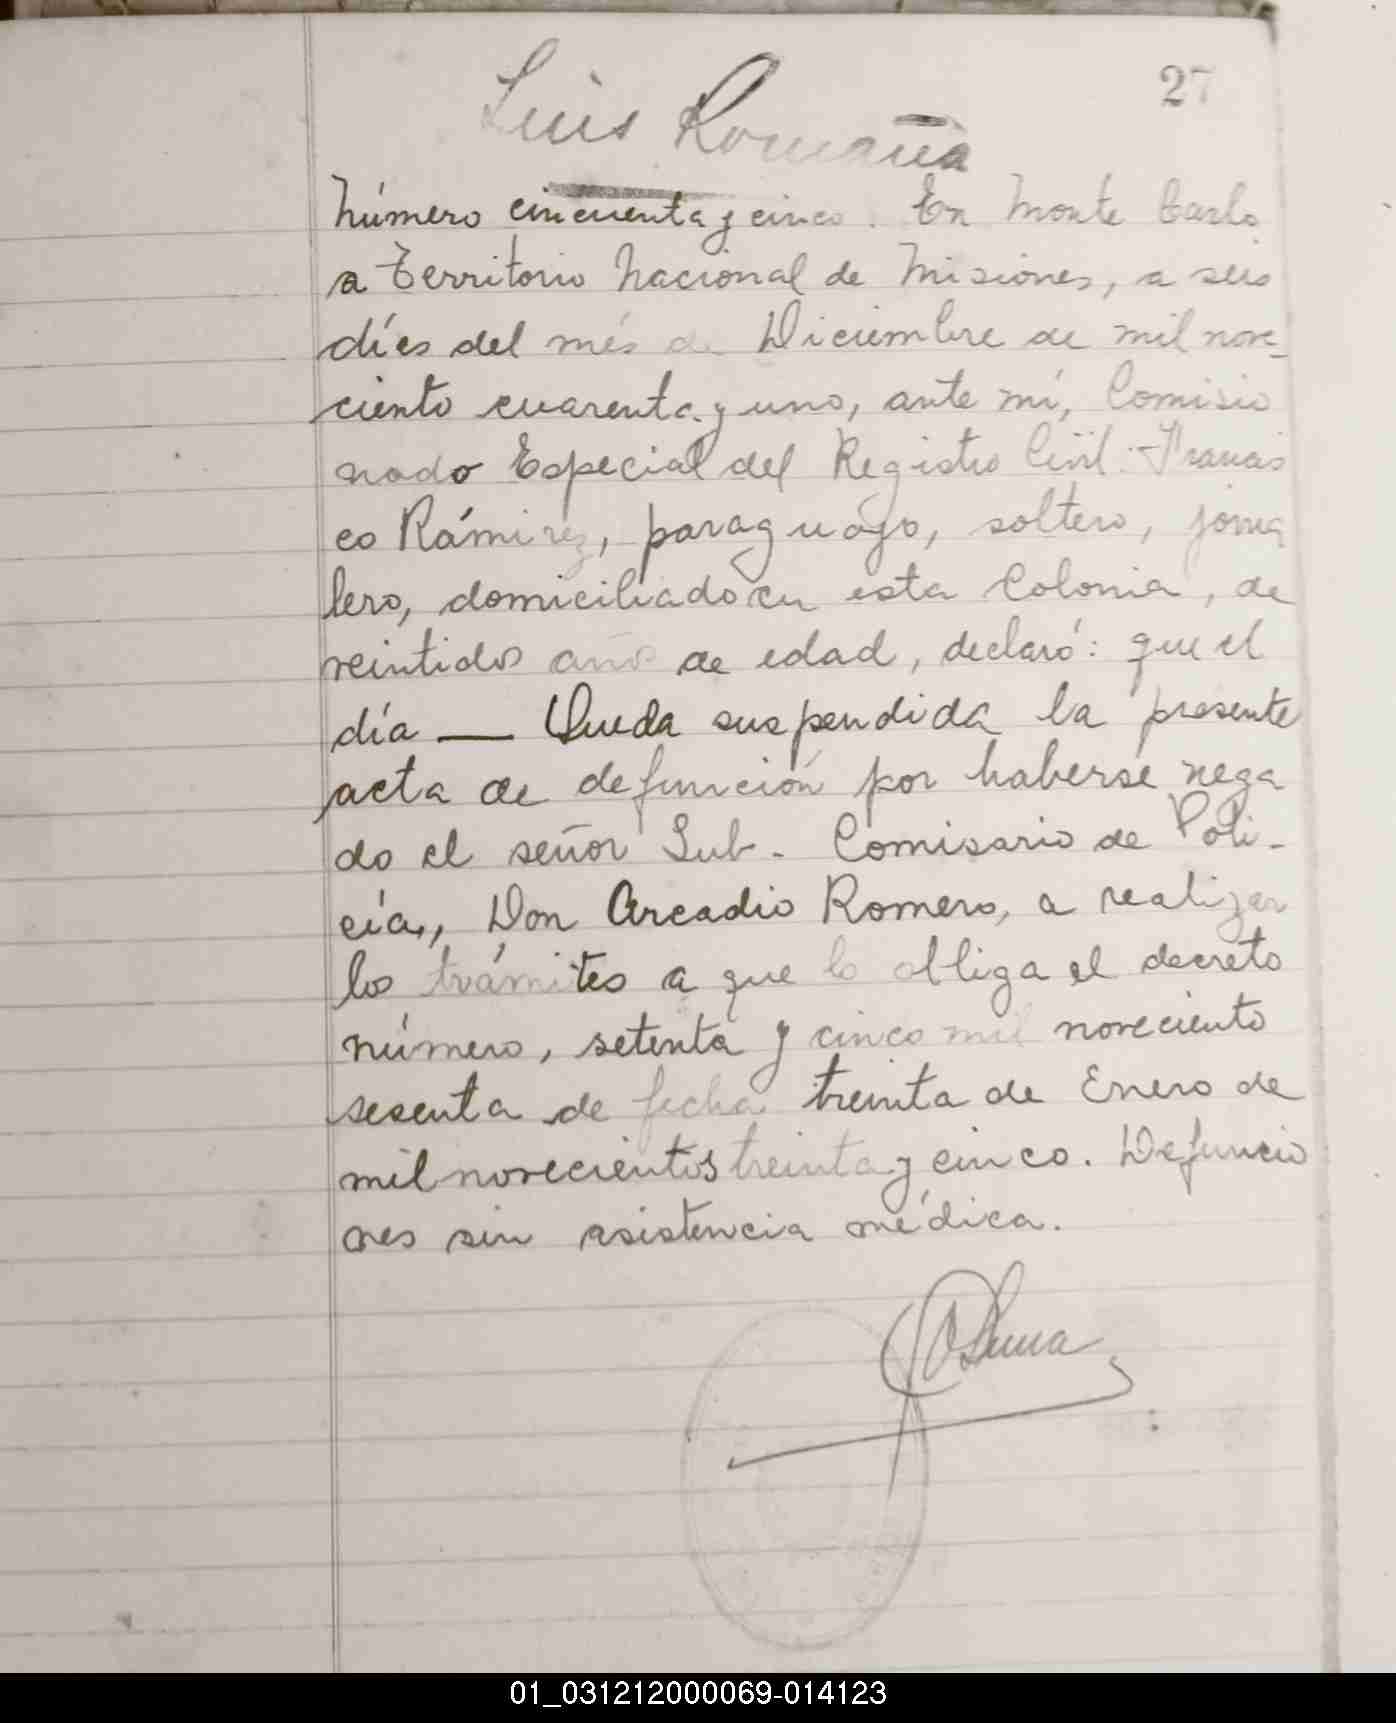 27
Luis Romaña
Número cincuenta y cinco. En Monte Carlo
a Territorio Nacional de Misiones, a seis
díes del més de Diciembre de mil nove-
ciento cuarenta y uno, ante mí, Comisio
nado Especial del Registro Civil: Francis
co Rámirez, paraguayo, soltero, jorna
lero, domiciliado en esta Colonia, de
veintidos años de edad, declaró: que el
día — Queda suspendida la presente
acta de defunción por haberse nega
do el señor Sub-Comisario de Poli-
cía, Don Arcadio Romero, a realizar
los trámites a que lo obliga el decreto
número, setenta y cinco mil noveciento
sesenta de fecha treinta de Enero de
mil novecientos treinta y cinco. Defuncio
nes sin asistencia médica.
01_031212000069-014123